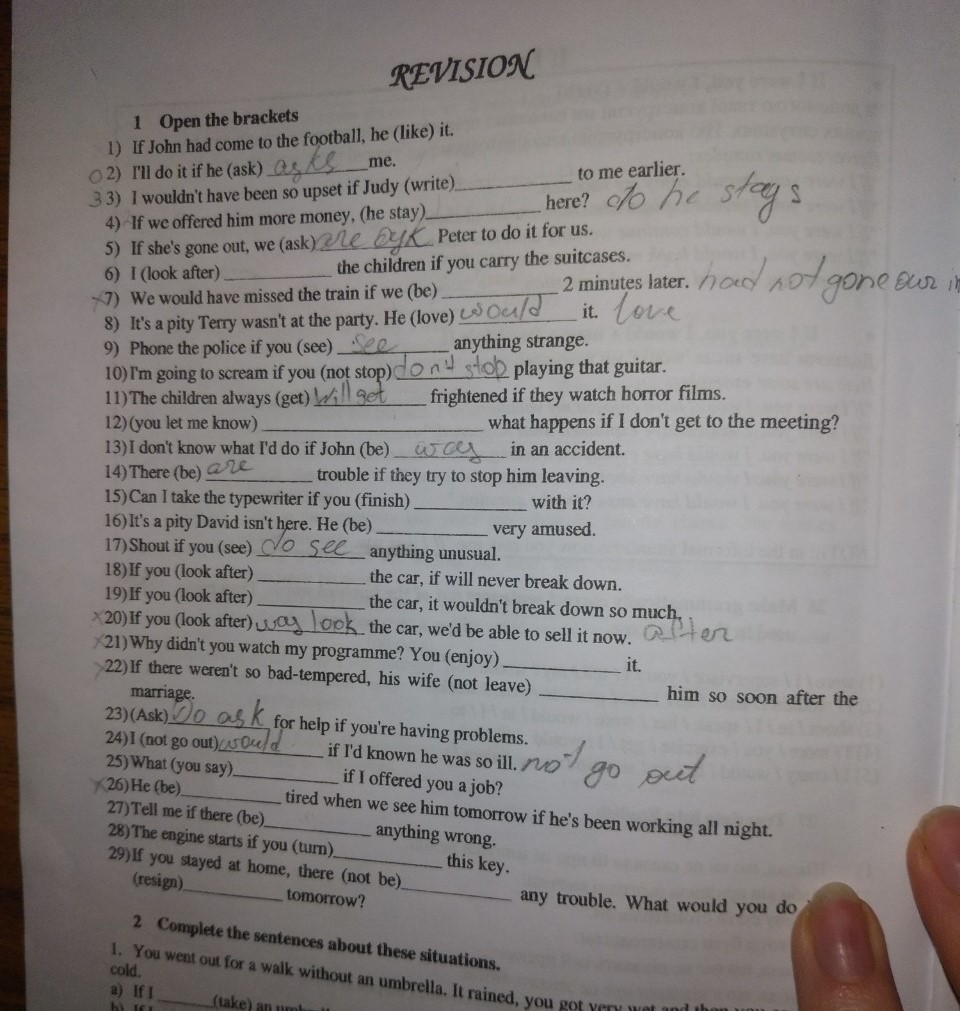 REVISION
1 Open the brackets
1) If John had come to the football, he (like) it.
2) I'll do it if he (ask) asks me.
3 3) I wouldn't have been so upset if Judy (write)__________ to me earlier.
4) If we offered him more money, (he stay)__________ here? do he stays
5) If she's gone out, we (ask) are Peter to do it for us.
6) I (look after) __________ the children if you carry the suitcases.
7) We would have missed the train if we (be) __________ 2 minutes later. had not gone our
8) It's a pity Terry wasn't at the party. He (love) would it. love
9) Phone the police if you (see) see anything strange.
10) I'm going to scream if you (not stop) don't stop playing that guitar.
11) The children always (get) Will get frightened if they watch horror films.
12) (you let me know) __________ what happens if I don't get to the meeting?
13) I don't know what I'd do if John (be) was in an accident.
14) There (be) are trouble if they try to stop him leaving.
15) Can I take the typewriter if you (finish) __________ with it?
16) It's a pity David isn't here. He (be) __________ very amused.
17) Shout if you (see) do see anything unusual.
18) If you (look after) __________ the car, if will never break down.
19) If you (look after) __________ the car, it wouldn't break down so much.
x 20) If you (look after) was look the car, we'd be able to sell it now. after
x 21) Why didn't you watch my programme? You (enjoy) __________ it.
22) If there weren't so bad-tempered, his wife (not leave) __________ him so soon after the
marriage.
23) (Ask) Do ask for help if you're having problems.
24) I (not go out) would if I'd known he was so ill. not go out
25) What (you say)__________ if I offered you a job?
x 26) He (be)__________ tired when we see him tomorrow if he's been working all night.
27) Tell me if there (be)__________ anything wrong.
28) The engine starts if you (turn)__________ this key.
29) If you stayed at home, there (not be)__________ any trouble. What would you do
(resign)__________ tomorrow?
2 Complete the sentences about these situations.
1. You went out for a walk without an umbrella. It rained, you got very wet and then you
cold.
a) If I ______(take) an